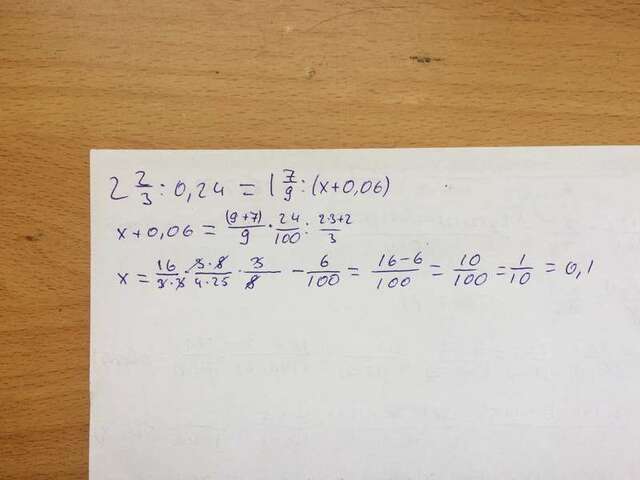 2 2/3 : 0,24 = 1 7/9 : (x+0,06)
x + 0,06 = (9+7)/9 · 24/100 : (2·3+2)/3
x = 16/(3·3) · (3·8)/(4·25) · 3/8 - 6/100 = (16-6)/100 = 10/100 = 1/10 = 0,1